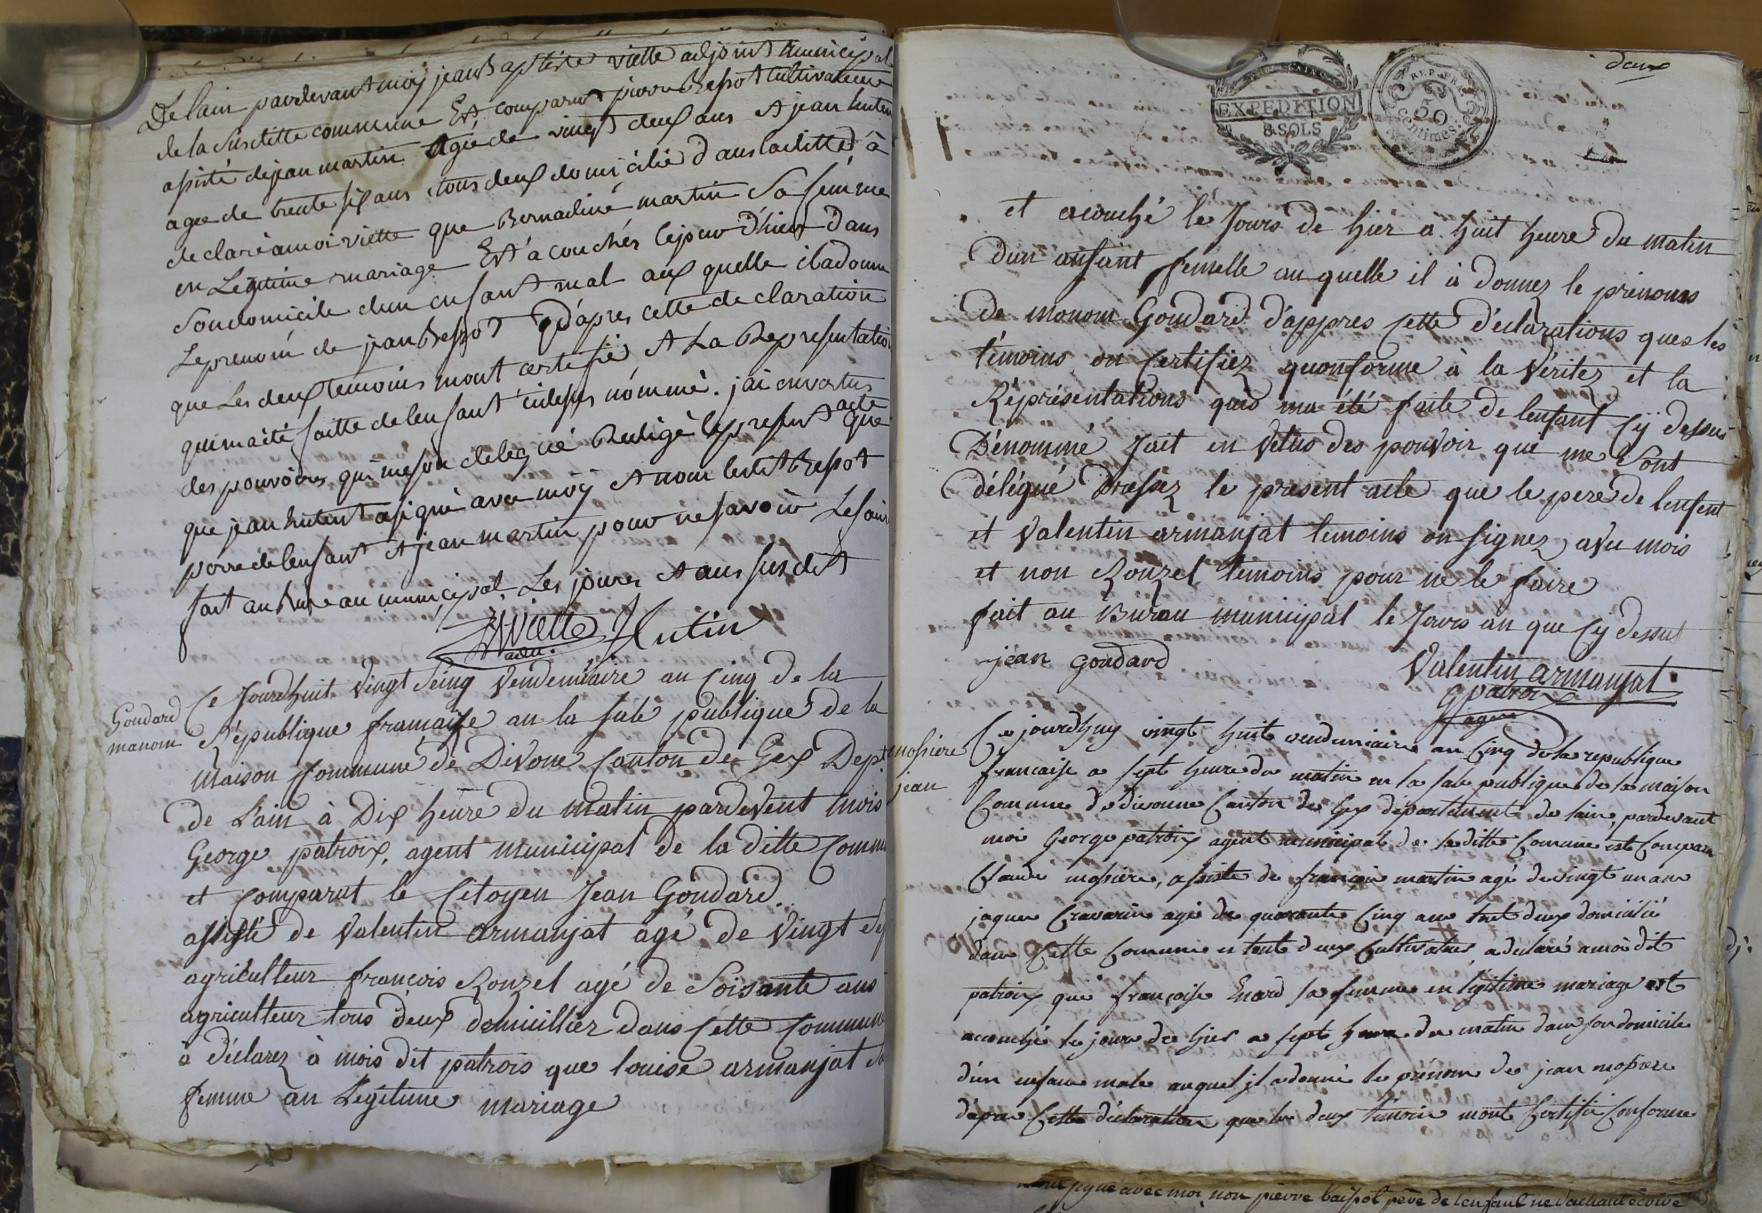 De lain pardevant moÿ jean Baptiste viette adjoint municipal
de la susditte commune Est comparut pierre Bessot cultivateur
asisté de jean martin Agee de vingt deux ans et jean hutin
agee de trente six ans tous deux domicilié dans laditte à
declaré a moi viette que Bernadine martin sa femme
en Legitime mariage Est acouchée le jour d'hier dans
son domicile dun enfant mal aux quelle il a donné
Le prenom de jean Bessot d'apres cette declaration
que Les deux temoins mont certifié et La Representation
qui m'a été faitte de lenfant cidessus nommé. j'ai en vertus
des pouvoirs qui me son delegué Redigé le present acte que
que jean hutin a signé avec moÿ et non ledit Bessot
perre de lenfant et jean martin pour ne savoir Le faire
fait au Bureau municipal Les jours et ans susdit
JB Viette J Hutin
adm.
Goudard
manom
Ce Jourdhuit vingt Seing Vendemiaire an Cinq de la
République francaise an la sale publique de la
Maison Commune de Divone Canton de Gex Dept
de Lain à Dix heure du matin pardevent mois
George patroix, agent municipal de la ditte Commu
et Comparut le Citoyen Jean Goudard
assisté de Valentin armanjat agé de Vingt Sep
agriculteur francois Rouzel agé de Soisante ans
agriculteur tous deux domicillier dans Cette Commune
à déclarez à mois dit patrois que louise armanjat sa
femme an Légitime mariage
deux
REP. FR.
EXPEDITION
8 SOLS
50
Centimes
et acouché le Jours de hier a huit heure du matin
Dun anfant femelle au quelle il à donnez le prenoms
De monom Goudard d'appres Cette déclarations que les
témoins on Certifiez quonforme à la Véritez et la
Réprésentations quis ma été faite de lenfant Cÿ dessus
Dénommé Jait en Vetus des pouvoir que me Sont
délégué Dressez le present acte que le pere de lenfent
et Valentin armanjat temoins on signez avec mois
et non Rouzel temoins pour ne le faire
fait au Bureau municipal le Jours an que Cy dessus
jean goudard
Valentin armanjat
G patroix
agent
mossiere
jean
Ce jourdhuy vingt huit vendemiaire an Cinq de la republique
francaise a sept heure du matin en la sale publique de la maison
Commune de divonne Canton de Gex département de lain, pardevant
moi George patroix agent municipal de la ditte Comune est Comparu
Claude mossiere, assisté de françois martin agé de vingt un ans
jaque Cravarin agé de quarante Cinq ans tout deux domicilié
dans Cette Commune et tout deux Cultivateur, a declaré a moi dit
patroix que françoise Enard sa femme en légitime mariage est
acouchée le jour de hier a sept heure du matin dans son domicile
d'un enfant male auquel il a donné le prenom de jean mossiere
d'apres Cette déclaration que les deux témoins mont Certifié Conforme
signé avec moi non pierre baissot père de l'enfant ne sachant écrire